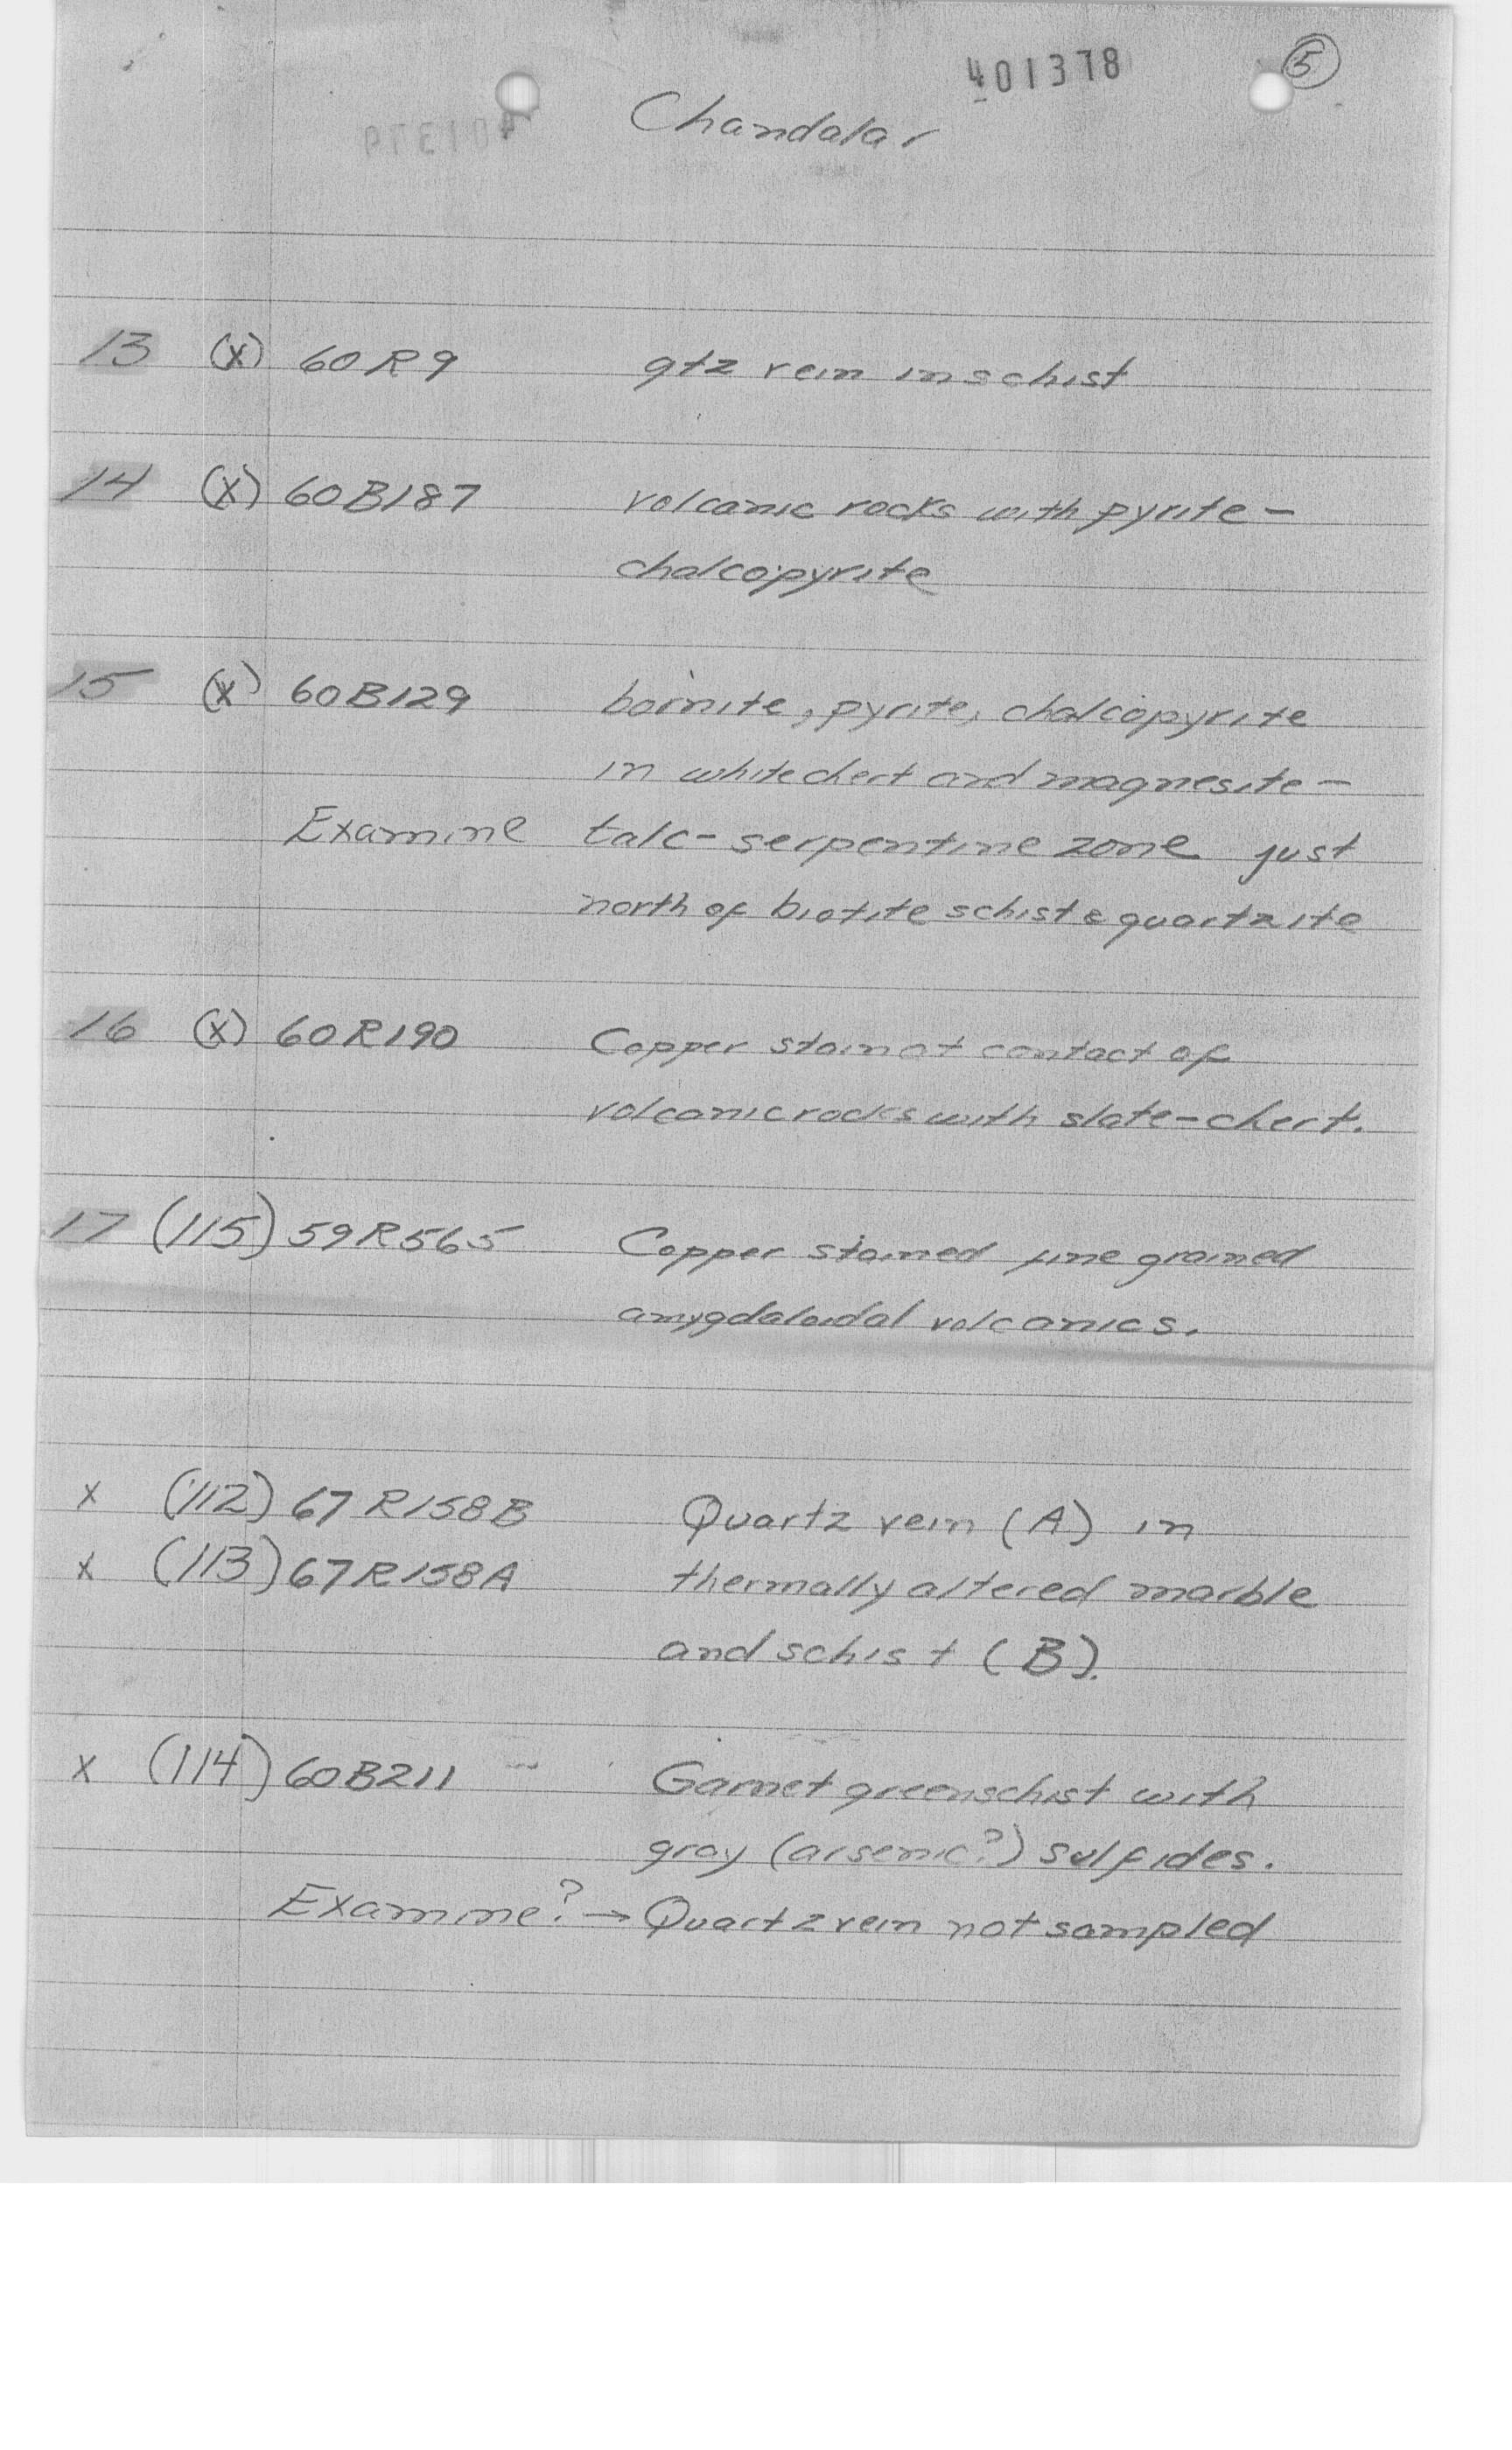 401378 5
Chandalar
13 (x) 60R9 qtz vein in schist
14 (x) 60B187 volcanic rocks with pyrite -
chalcopyrite
15 (x) 60B129 bornite, pyrite, chalcopyrite
in white chert and magnesite -
Examine talc - serpentine zone just
north of biotite schist & quartzite
16 (x) 60R190 Copper stain at contact of
volcanic rocks with slate - chert.
17 (115) 59R565 Copper stained fine grained
amygdaloidal volcanics.
x (112) 67R158B Quartz vein (A) in
x (113) 67R158A thermally altered marble
and schist (B).
x (114) 60B211 Garnet greenschist with
gray (arsenic?) sulfides.
Examine? → Quartz vein not sampled